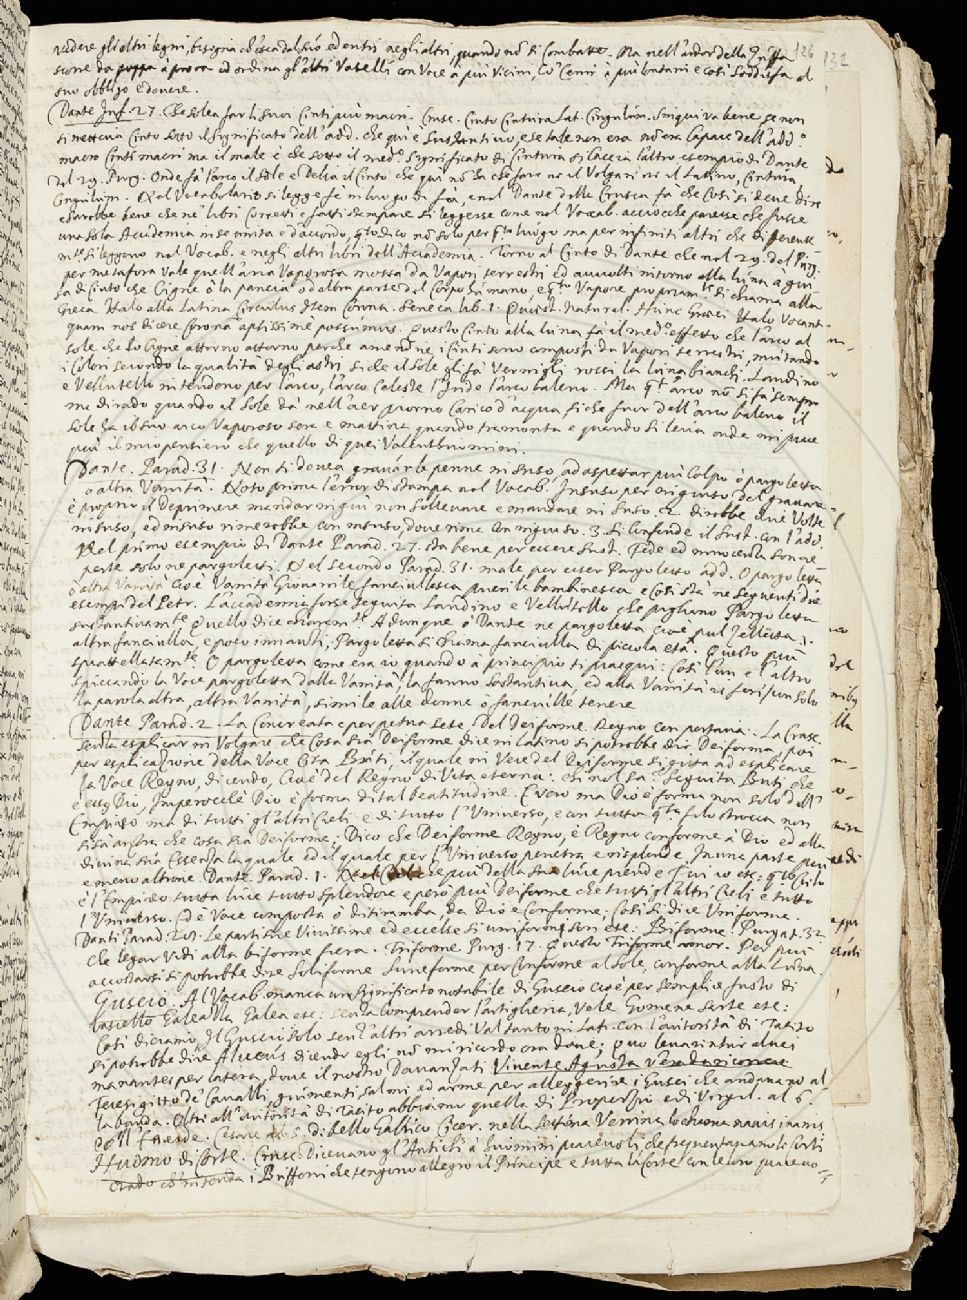 vedere gli altri legni, bisogna ch'esca dal suo ed entri negli altri, quando nō si combatte. Ma nell'ardor della
sione da poppa à prora ed ordina gl'altri Vaselli con Voce à più Vicini, co' Cenni à più lontani e così soddisfa al
suo obbligo e dovere.
126 132
Dante Inf. 27. Che solea far li suoi Cinti più macri. Crusc. Cinto Cintura Lat. Cingulum. Sin qui va bene, se non
si mettevā Cinto sotto il significato dell'add. che qui è Sustantivo, e se tale non era nō era capace dell'add.º
macro Cinti macri ma il male è che sotto il med.º significato di Cintura si faccia l'altro esempio di Dante
del 29. Purg. Onde fà l'arco il Sole e Delia il Cinto che qui nō hà che fare ne il Volgare ne il Latino, Cintura
Cingulum. Nel Vocabolario si legge fè in luogo di fà, e nel Dante della Crusca fà che così si deve dire
e sarebbe bene che ne' libri Corretti e fatti stampare si leggesse come nel Vocab. acciocche paresse che fusse
una sola Accademia insè unita e d'accordo, q.to dico nō solo per q.to luogo ma per infiniti altri che differente-
m.te si leggono nel Vocab. e negli altri libri dell'Accademia. Torno al Cinto di Dante che nel 29. del Purg.
per metafora vale quell'aria Vaporosa mossa da Vapori terrestri ed avvolti intorno alla luna à gui-
sa di Cinto che Cigne ò la pancia od altra parte del Corpo humano, e q.to Vapore propriam.te si chiama alla
Greca Halo alla Latina Circulus Item Corona. Seneca lib. 1. Quest. Natural. Hunc Graeci Halo Vocant
quam nos dicere Corona aptissime possumus. Questo Cinto alla luna fà il med.º effetto che l'arco al
sole che lo Cigne attorno attorno perche amendue i Cinti sono composti da Vapori terrestri, mutando
i Colori secondo la qualità degli astri sicche il Sole gli fà Vermigli rossi la luna bianchi. Landino
e Vellutello intendono per l'arco, l'arco Celeste l'Iride l'arco baleno. Ma q.to arco nō si fa sempre
me di rado quando il Sole dà nell'aer piorno Carico d'acqua sicche fuor dell'arco baleno il
sole hà il suo arco Vaporoso sera e mattina quando tramonta e quando si leva onde mi piace
più il mio pensiero che quello di quei Valenthuomini.
Dante. Parad. 31. Non ti dovea gravar le penne in suso, ad aspettar più colpo ò pargoletta
o altra Vanità. Noto prima l'error di stampa nel Vocab. Insuso per in giuso del gravare
è proprio il deprimere mandar in giù non sollevare e mandare in suso. 2. direbbe due Volte
in suso, ed insuso rimerebbe con insuso, dove rima con ingiuso. 3. Si Confonde il Sust. con l'add.
Nel primo esempio di Dante Parad. 27. sta bene per essere Sust. Fede ed innocenza son re-
perte solo ne pargoletti. Nel secondo Parad. 31. male per esser Pargoletta add. O pargoletta
ò altra Vanità cioè Vanità Giovanile fanciullesca puerile bambinesca e così sta ne seguenti due
esempi del Petr. L'accademia forse seguita Landino e Vellutello che pigliano Pargoletta
sustantivam.te. Quello dice chiaram.te. Adunque ò Dante ne pargoletta cioè pulzelletta,
altra fanciulla, e poco innanti, Pargoletta si chiama fanciulla di piccola età. Questo più
spiattellatam.te O pargoletta come era io quando à principio ti piacqui: Così l'un e l'altro
spiccando la Voce pargoletta dalla Vanità, la fanno sostantiva, ed alla Vanità si riferisce solo
la parola altra, altra Vanità, simile alle donne ò fanciulle tenere
Dante Parad. 2. La Concreata e perpetua sete Del Deiforme Regno cen portava. La Crusc.
senza esplicar in Volgare che cosa sia Deiforme dice in latino si potrebbe dir Deiforma, poi
per esplicazione della Voce Cita Buti, il quale in Vece del Deiforme si gitta ad esplicare
la Voce Regno, dicendo, Cioè del Regno di Vita eterna: et nel sa. seguita Buti, che
è esso Dio, Imperocche Dio è forma di tal beatitudine. È vero ma Dio è forma non solo dell'
Empireo ma di tutti gl'altri Cieli e di tutto l'Universo, e con tutta q.ta filastrocca non
si sà ancora che cosa sia Deiforme. Dico che Deiforme Regno, è Regno conforme à Dio ed alla
divina sua Essenza la quale ed il quale per l'Universo penetra e risplende, In una parte più
e meno altrove. Dante Parad. 1. Nel Ciel che più della sua luce prende Fui io etc: q.to Cielo
è l'Empireo tutta luce tutto Splendore e però più Deiforme che tutti gl'altri Cieli e tutto
l'Universo. Ed è Voce composta à ditiramba, da Dio e Conforme; Così si dice Uniforme.
Danti Parad: 27. Le parti sue Vivissime ed eccelse Si uniformi son etc: Biforme. Purgat. 32
che legar Vidi alla biforme fiera. Triforme Purg. 17. Questo Triforme amor. Per più
accostarsi si potrebbe dire Soliforme Luneforme per Conforme al Sole, conforme alla Luna.
Guscio. Al Vocab. manca un significato notabile di Guscio cioè per semplice fusto di
Vascello Galea etc: senza comprender l'artiglieria, Vele Gomene Sarte etc:
Così diciamo, Il Guscio solo senz'altri arredi Val tanto in Lat. con l'autorità di Tacito
si potrebbe dire Alveus dicendo egli nō mi ricordo ora dove; quo levarentur alvei
manantes per latera, dove il nostro Davanzati
Fece gitto de' Cavalli, giumenti salmi ed arme per alleggerire i Gusci che andavano al-
la banda. Oltre all'autorità di Tacito abbiamo quella di Properzio e di Virgil. al 6.
dell'Eneide. Cesare di bello Gallico Cicer. nella settima Verrina lo chiama navis inanis
Huomo di Corte. Crusc. Dicevano gl'Antichi à huomini piacevoli che frequentavano le Corti
Credo ch'intenda i Buffoni che tengono allegro il Principe e tutta la Corte con le lor piacevo-